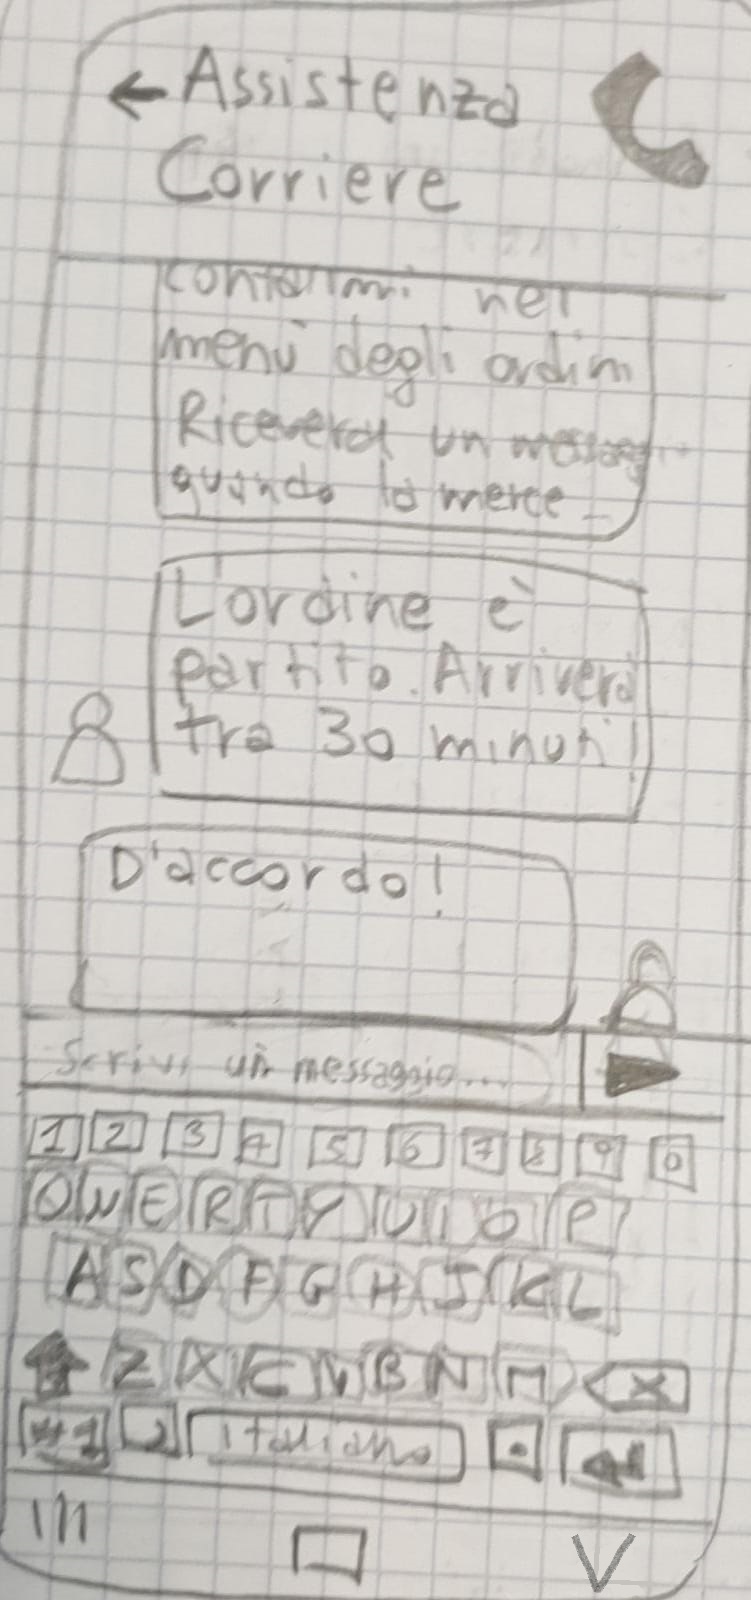 ← Assistenza
Corriere
nel
menù degli ordini
Riceverai un
quando la merce
L'ordine è
partito. Arriverà
tra 30 minuti!
D'accordo!
Scrivi un messaggio...
1 2 3 4 5 6 7 8 9 0
Q W E R T Y U I O P
A S D F G H J K L
Z X C V B N M X
italiano .